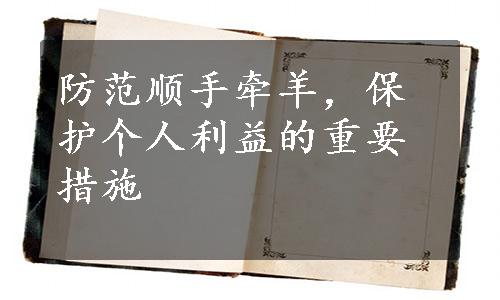 防范顺手牵羊，保
护个人利益的重要
措施